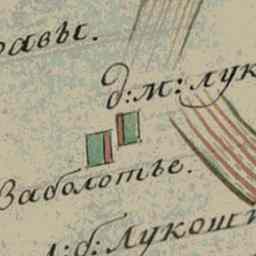 равъс.
д:м: лук
Заболотье.
д:б: Лукоши